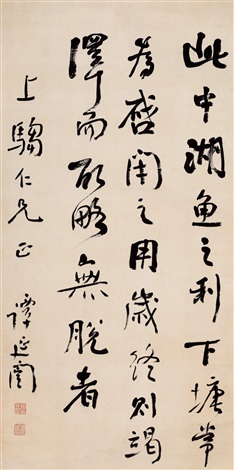 此中湖魚之利下塘常
為啓閉之用歲終則竭
澤而取略無脫者
上騶仁兄正
譚延闓